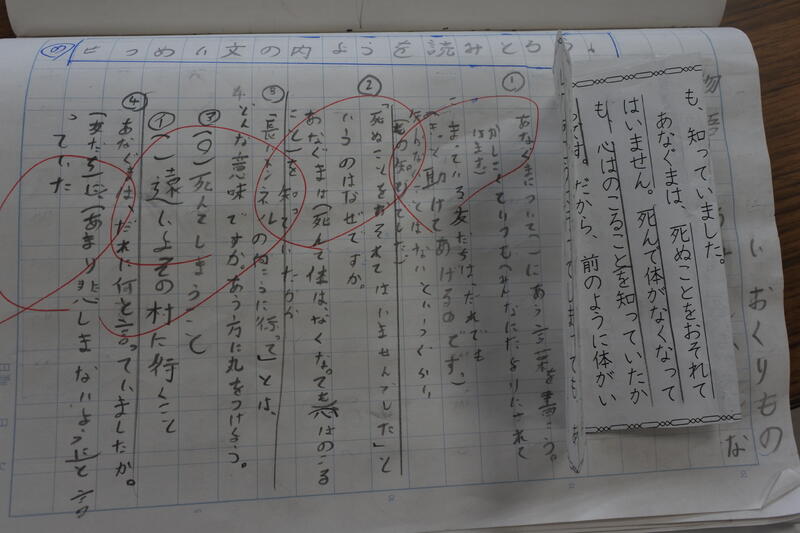 いおくりもの
も、知っていました。
あなぐまは、死ぬことをおそれて
はいません。死んで体がなくなって
も、心はのこることを知っていたか
らです。だから、前のように体がい
① あなぐまについて( )にあう言葉を書こう。
かしこくていつもみんなにたよりにされて
います。
こまっている友だちは、だれでも
きっと助けてあげるのです。
知らないことはないというぐらい
②
「死ぬことをおそれてはいませんでした」と
いうのはなぜですか。
あなぐまは(死んで体は、なくなっても心はのこる
こと)を知っていたから
③
「長いトンネルのむこうに行って」とは、
どんな意味ですか。あう方に丸をつけよう。
(○)死んでしまうこと
( )遠いよその村に行くこと
④
あなぐまは、だれに何と言っていましたか。
(友だち)に、(あまり悲しまないように)と言
っていた